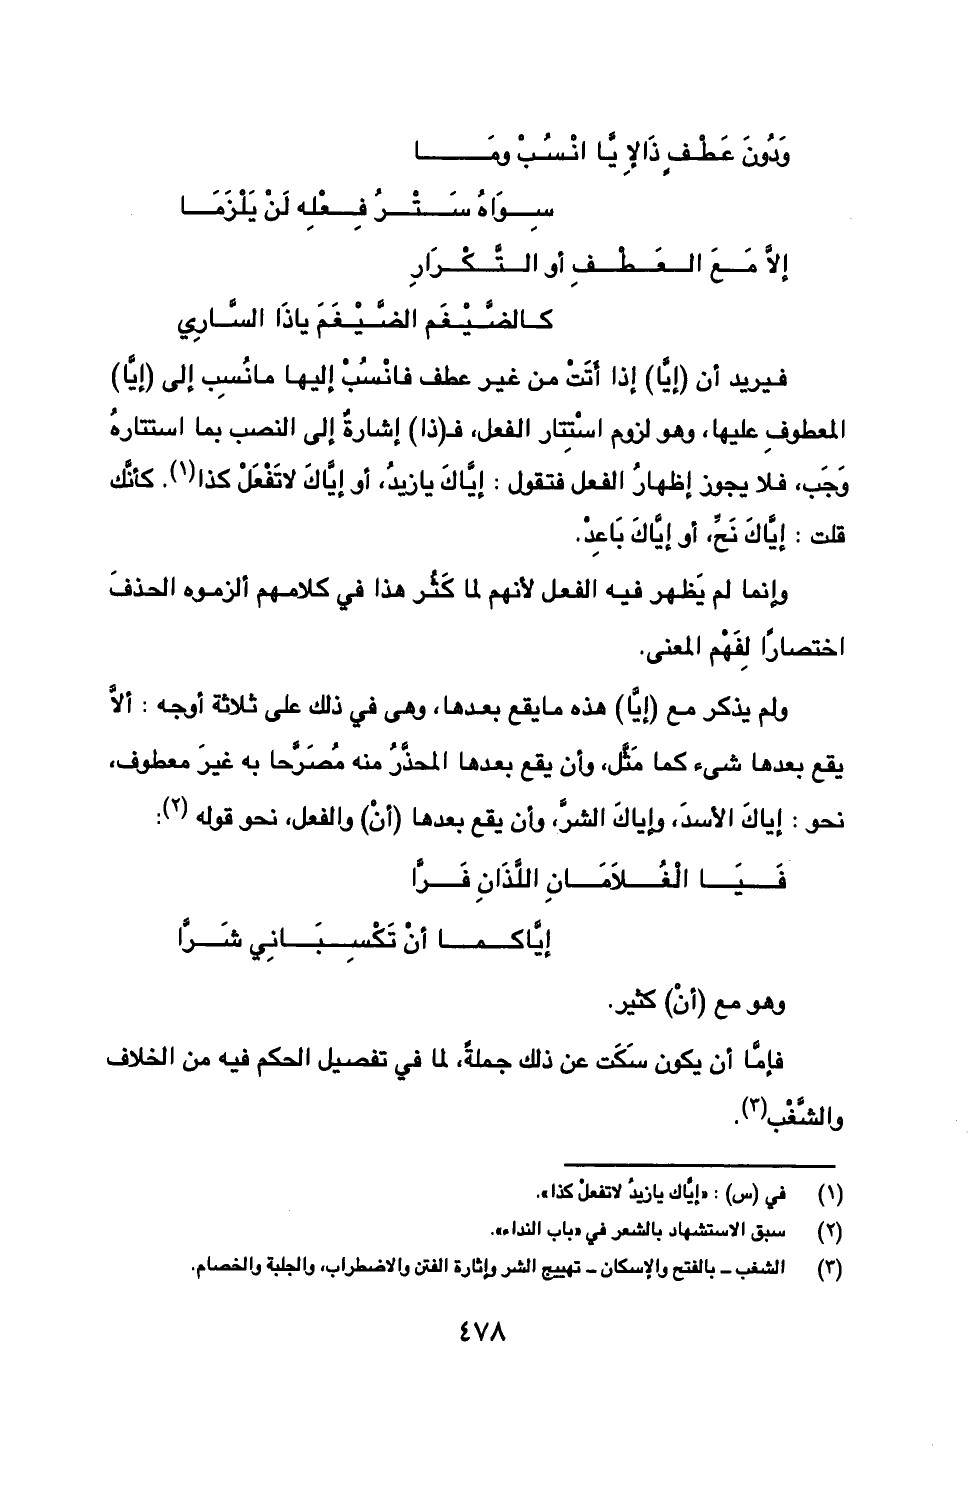 وَدُونَ عَطْفٍ ذَالإِيَّا انْسُبْ ومَــا
سِــوَاهُ سَــتْــرُ فِــعْلِه لَنْ يَلْزَمَــا
إلاَّ مَــعَ الــعَــطْــفِ أو الــتَّــكْــرَارِ
كــالضَّــيْــغَم الضَّــيْــغَمَ ياذَا السَّــارِي
فيريد أن (إيَّا) إذا أَتَتْ من غير عطف فانْسُبْ إليها مانُسِب إلى (إيَّا)
المعطوفِ عليها، وهو لزوم استْتِتار الفعل، فـ(ذا) إشارةٌ إلى النصب بما استتارهُ
وَجَب، فلا يجوز إظهارُ الفعل فتقول : إيَّاكَ يازيدُ، أو إيَّاكَ لاتَفْعَلْ كذا(١). كأنَّك
قلت : إيَّاكَ نَحِّ، أو إيَّاكَ بَاعِدْ.
وإنما لم يَظهر فيه الفعل لأنهم لما كَثُر هذا في كلامهم ألزموه الحذفَ
اختصارًا لِفَهْم المعنى.
ولم يذكر مع (إيَّا) هذه مايقع بعدها، وهى في ذلك على ثلاثة أوجه : ألاَّ
يقع بعدها شىء كما مَثَّل، وأن يقع بعدها المحذَّرُ منه مُصَرَّحا به غيرَ معطوف،
نحو : إياكَ الأسدَ، وإياكَ الشرَّ، وأن يقع بعدها (أنْ) والفعل، نحو قوله (٢):
فَــيَــا الْغُــلاَمَــانِ اللَّذَانِ فَــرَّا
إيَّاكــمــا أنْ تَكْسِــبَــانِي شَــرَّا
وهو مع (أنْ) كثير.
فإمَّا أن يكون سَكَت عن ذلك جملةً، لما في تفصيل الحكم فيه من الخلاف
والشَّغْب(٣).
(١) في (س) : «إيَّاك يازيدُ لاتفعلْ كذا».
(٢) سبق الاستشهاد بالشعر في «باب النداء».
(٣) الشغب ـ بالفتح والإسكان ـ تهييج الشر وإثارة الفتن والاضطراب، والجلبة والخصام.
٤٧٨